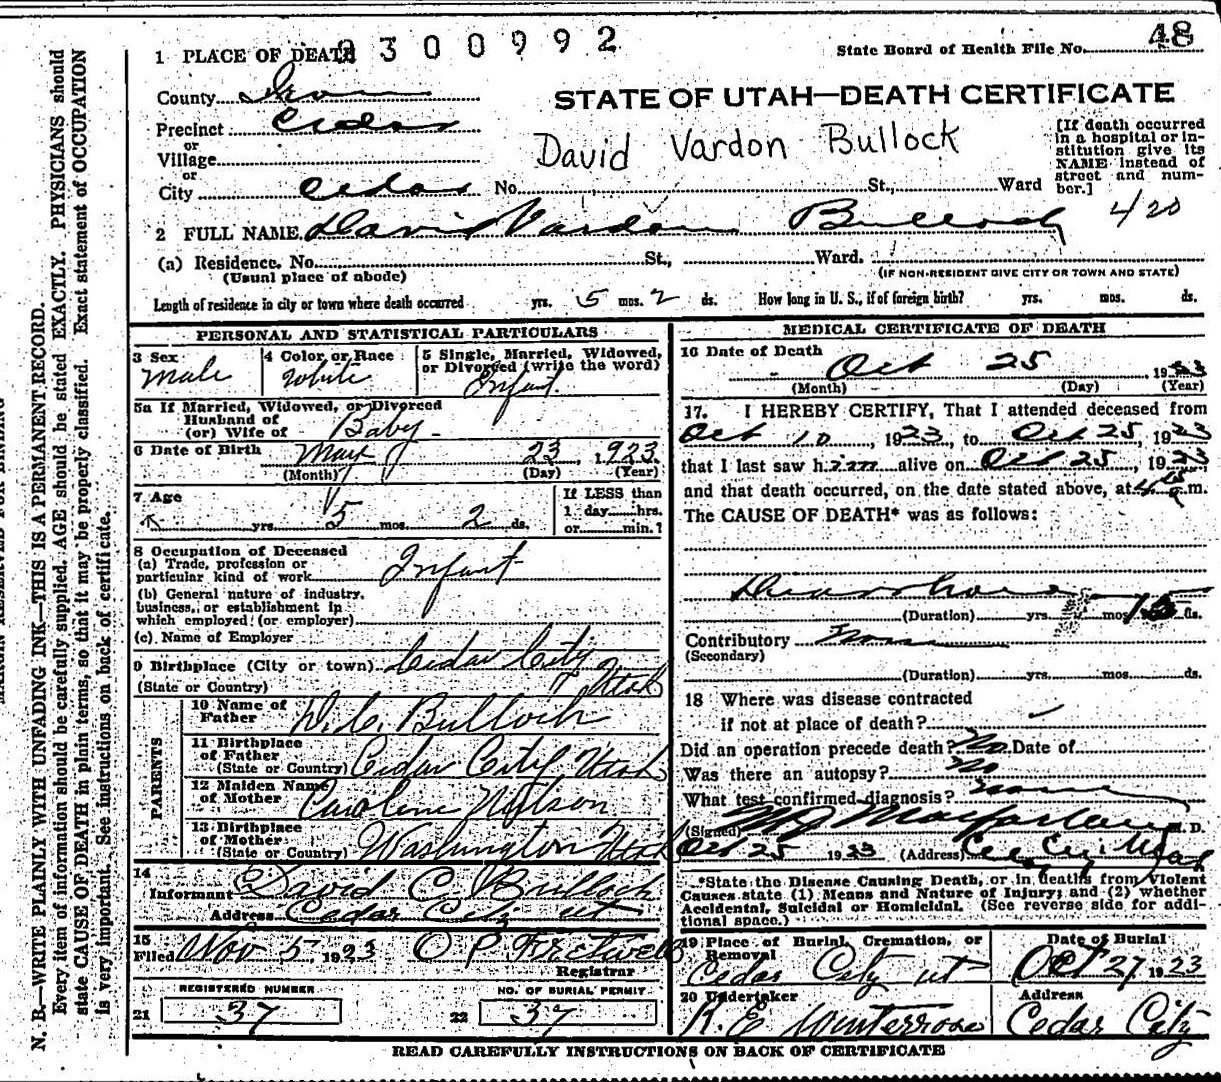 2300992
State Board of Health File No. 48
1 PLACE OF DEATH
County Iron
STATE OF UTAH—DEATH CERTIFICATE
Precinct Cedar
or
Village
or
City Cedar No. St., Ward
David Vardon Bullock
[If death occurred
in a hospital or in-
stitution give its
NAME instead of
street and num-
ber.]
4/20
2 FULL NAME David Vardon Bullock
(a) Residence. No. St., Ward.
(Usual place of abode)
(IF NON-RESIDENT GIVE CITY OR TOWN AND STATE)
Length of residence in city or town where death occurred yrs. 5 mos. 2 ds. How long in U. S., if of foreign birth? yrs. mos. ds.
PERSONAL AND STATISTICAL PARTICULARS
3 Sex
Male
4 Color or Race
White
5 Single, Married, Widowed,
or Divorced (write the word)
Infant
5a If Married, Widowed, or Divorced
Husband of
(or) Wife of Baby
6 Date of Birth May 23, 1923
(Month) (Day) (Year)
7 Age
yrs. 5 mos. 2 ds.
If LESS than
1 day hrs.
or min.?
8 Occupation of Deceased
(a) Trade, profession or
particular kind of work Infant
(b) General nature of industry,
business, or establishment in
which employed (or employer)
(c) Name of Employer
9 Birthplace (City or town) Cedar City
(State or Country) Utah
PARENTS
10 Name of
Father D. C. Bulloch
11 Birthplace
of Father
(State or Country) Cedar City Utah
12 Maiden Name
of Mother Caroline Nelson
13 Birthplace
of Mother
(State or Country) Washington Utah
14
Informant David C. Bulloch
Address Cedar City ut
15
Filed Nov 5, 1923 O P Fretwell
Registrar
REGISTERED NUMBER
21 37
NO. OF BURIAL PERMIT
22 37
MEDICAL CERTIFICATE OF DEATH
16 Date of Death
Oct 25 1923
(Month) (Day) (Year)
17. I HEREBY CERTIFY, That I attended deceased from
Oct 10, 1923, to Oct 25, 1923
that I last saw him alive on Oct 25, 1923
and that death occurred, on the date stated above, at m.
The CAUSE OF DEATH* was as follows:
Diarrhoea
(Duration) yrs. mos. 15 ds.
Contributory None
(Secondary)
(Duration) yrs. mos. ds.
18 Where was disease contracted
if not at place of death?
Did an operation precede death? No Date of
Was there an autopsy? No
What test confirmed diagnosis? none
(Signed) Macfarlane M. D.
Oct 25 1923 (Address) Cedar City Utah
*State the Disease Causing Death, or in deaths from Violent
Causes state (1) Means and Nature of Injury; and (2) whether
Accidental, Suicidal or Homicidal. (See reverse side for addi-
tional space.)
19 Place of Burial, Cremation, or
Removal
Cedar City ut
Date of Burial
Oct 27 1923
20 Undertaker
R. E. Wintterrose
Address
Cedar City
READ CAREFULLY INSTRUCTIONS ON BACK OF CERTIFICATE
N. B.—WRITE PLAINLY WITH UNFADING INK—THIS IS A PERMANENT RECORD.
Every item of information should be carefully supplied. AGE should be stated EXACTLY. PHYSICIANS should
state CAUSE OF DEATH in plain terms, so that it may be properly classified. Exact statement of OCCUPATION
is very important. See instructions on back of certificate.